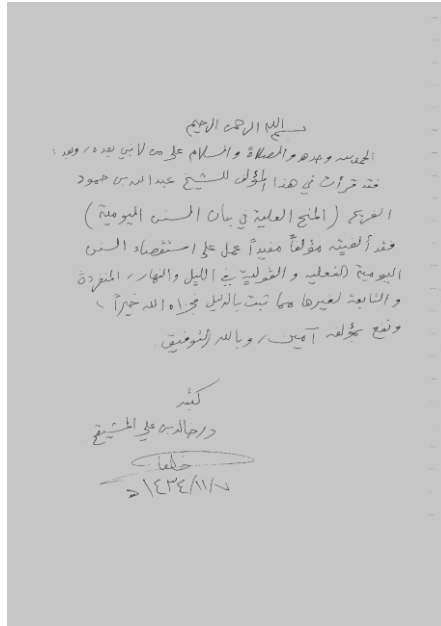 بسم الله الرحمن الرحيم
الحمد لله وحده والصلاة والسلام على من لا نبي بعده، وبعد:
فقد قرأت في هذا المؤلف للشيخ عبد الله بن حمود
الفريح (المنح العلية في بيان السنن اليومية)
فقد ألفيته مؤلفاً مفيداً عمل على استقصاء السنن
اليومية الفعلية والقولية في الليل والنهار، المنفردة
والتابعة لغيرها مما ثبت بالدليل فجزاه الله خيراً،
ونفع بمؤلفه آمين، وبالله التوفيق.
كتبه
د/ خالد بن علي المشيقح
١٤٣٤/١١/٧ه